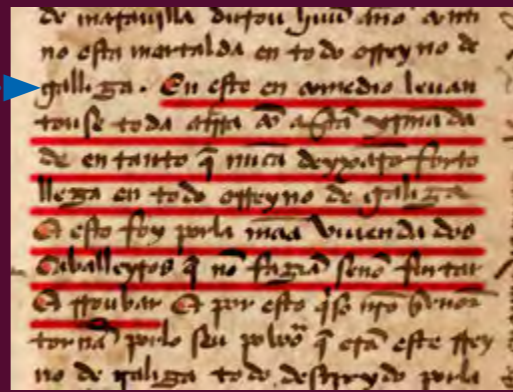 de marauilla durou huũ ano conti
no esta mortalda en todo orreyno de
galliza . En esto en comedio leuan
touse toda a sãta yrmãda
de en tanto q̃ nũca deyxarõ forto
lleza en todo orreyno de galiza
E esto foy porla maa viuenda dos
caballeyros q̃ nõ faziã senõ furtar
E rroubar E por esto q̃so nr̃o señor
tornar porlo seu poboõ q̃ era este rrey
no de galiza todo destroydo porla